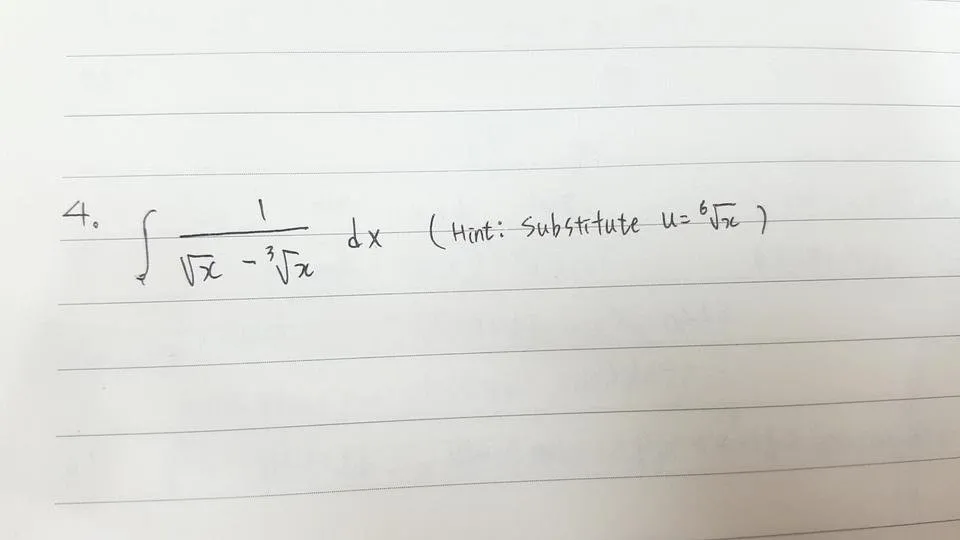 4. ∫ 1/(√x - ³√x) dx (Hint: Substitute u= ⁶√x )